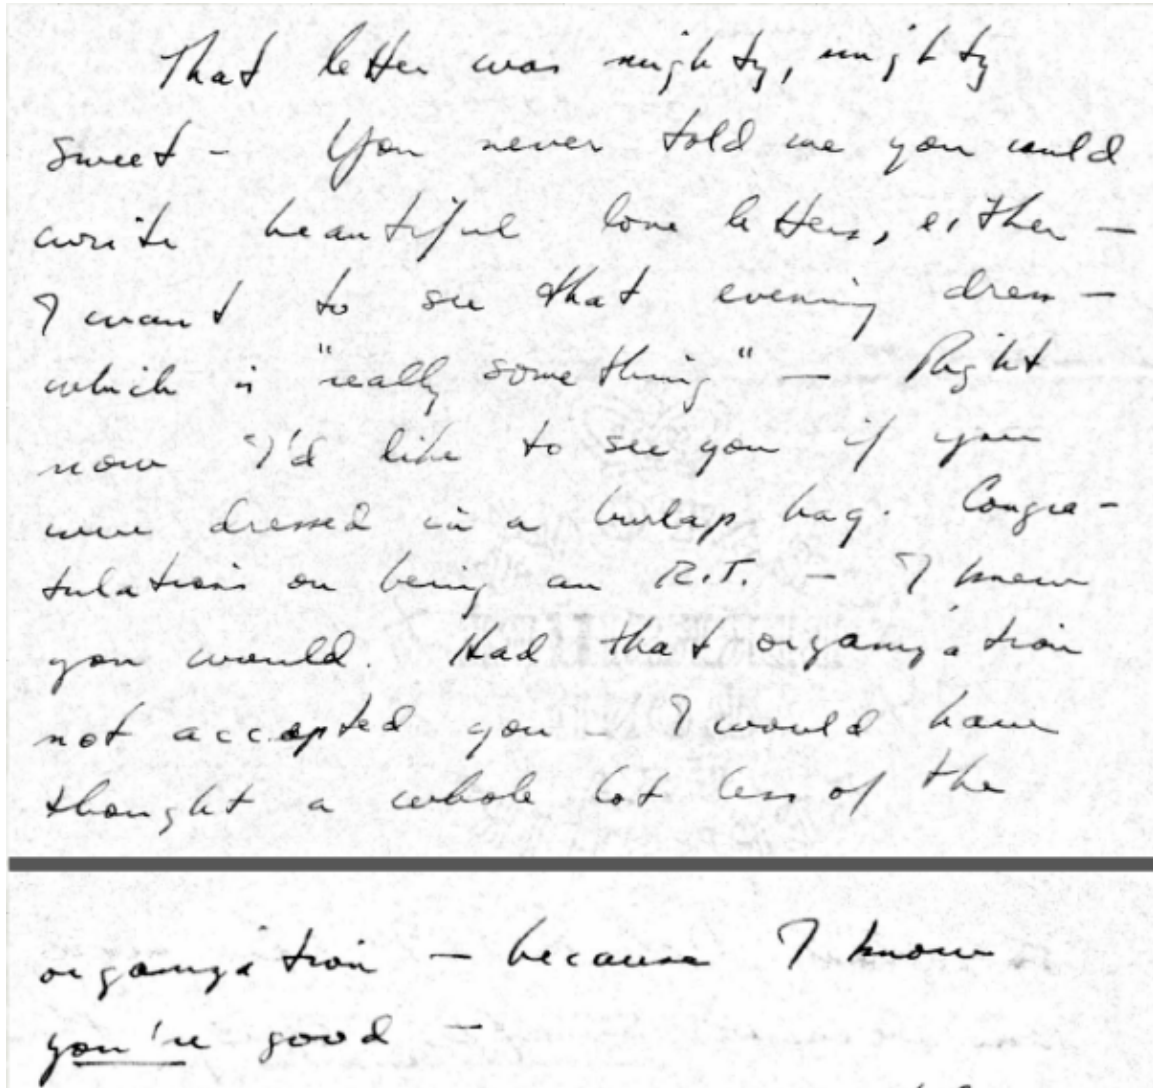 That letter was mighty, mighty
sweet - You never told me you could
write beautiful love letters, either -
I want to see that evening dress -
which is "really something" - Right
now I'd like to see you if you
were dressed in a burlap bag. Congra-
tulations on being an R.T. - I knew
you would. Had that organization
not accepted you - I would have
thought a whole lot less of the
organization - because I know
you're good -